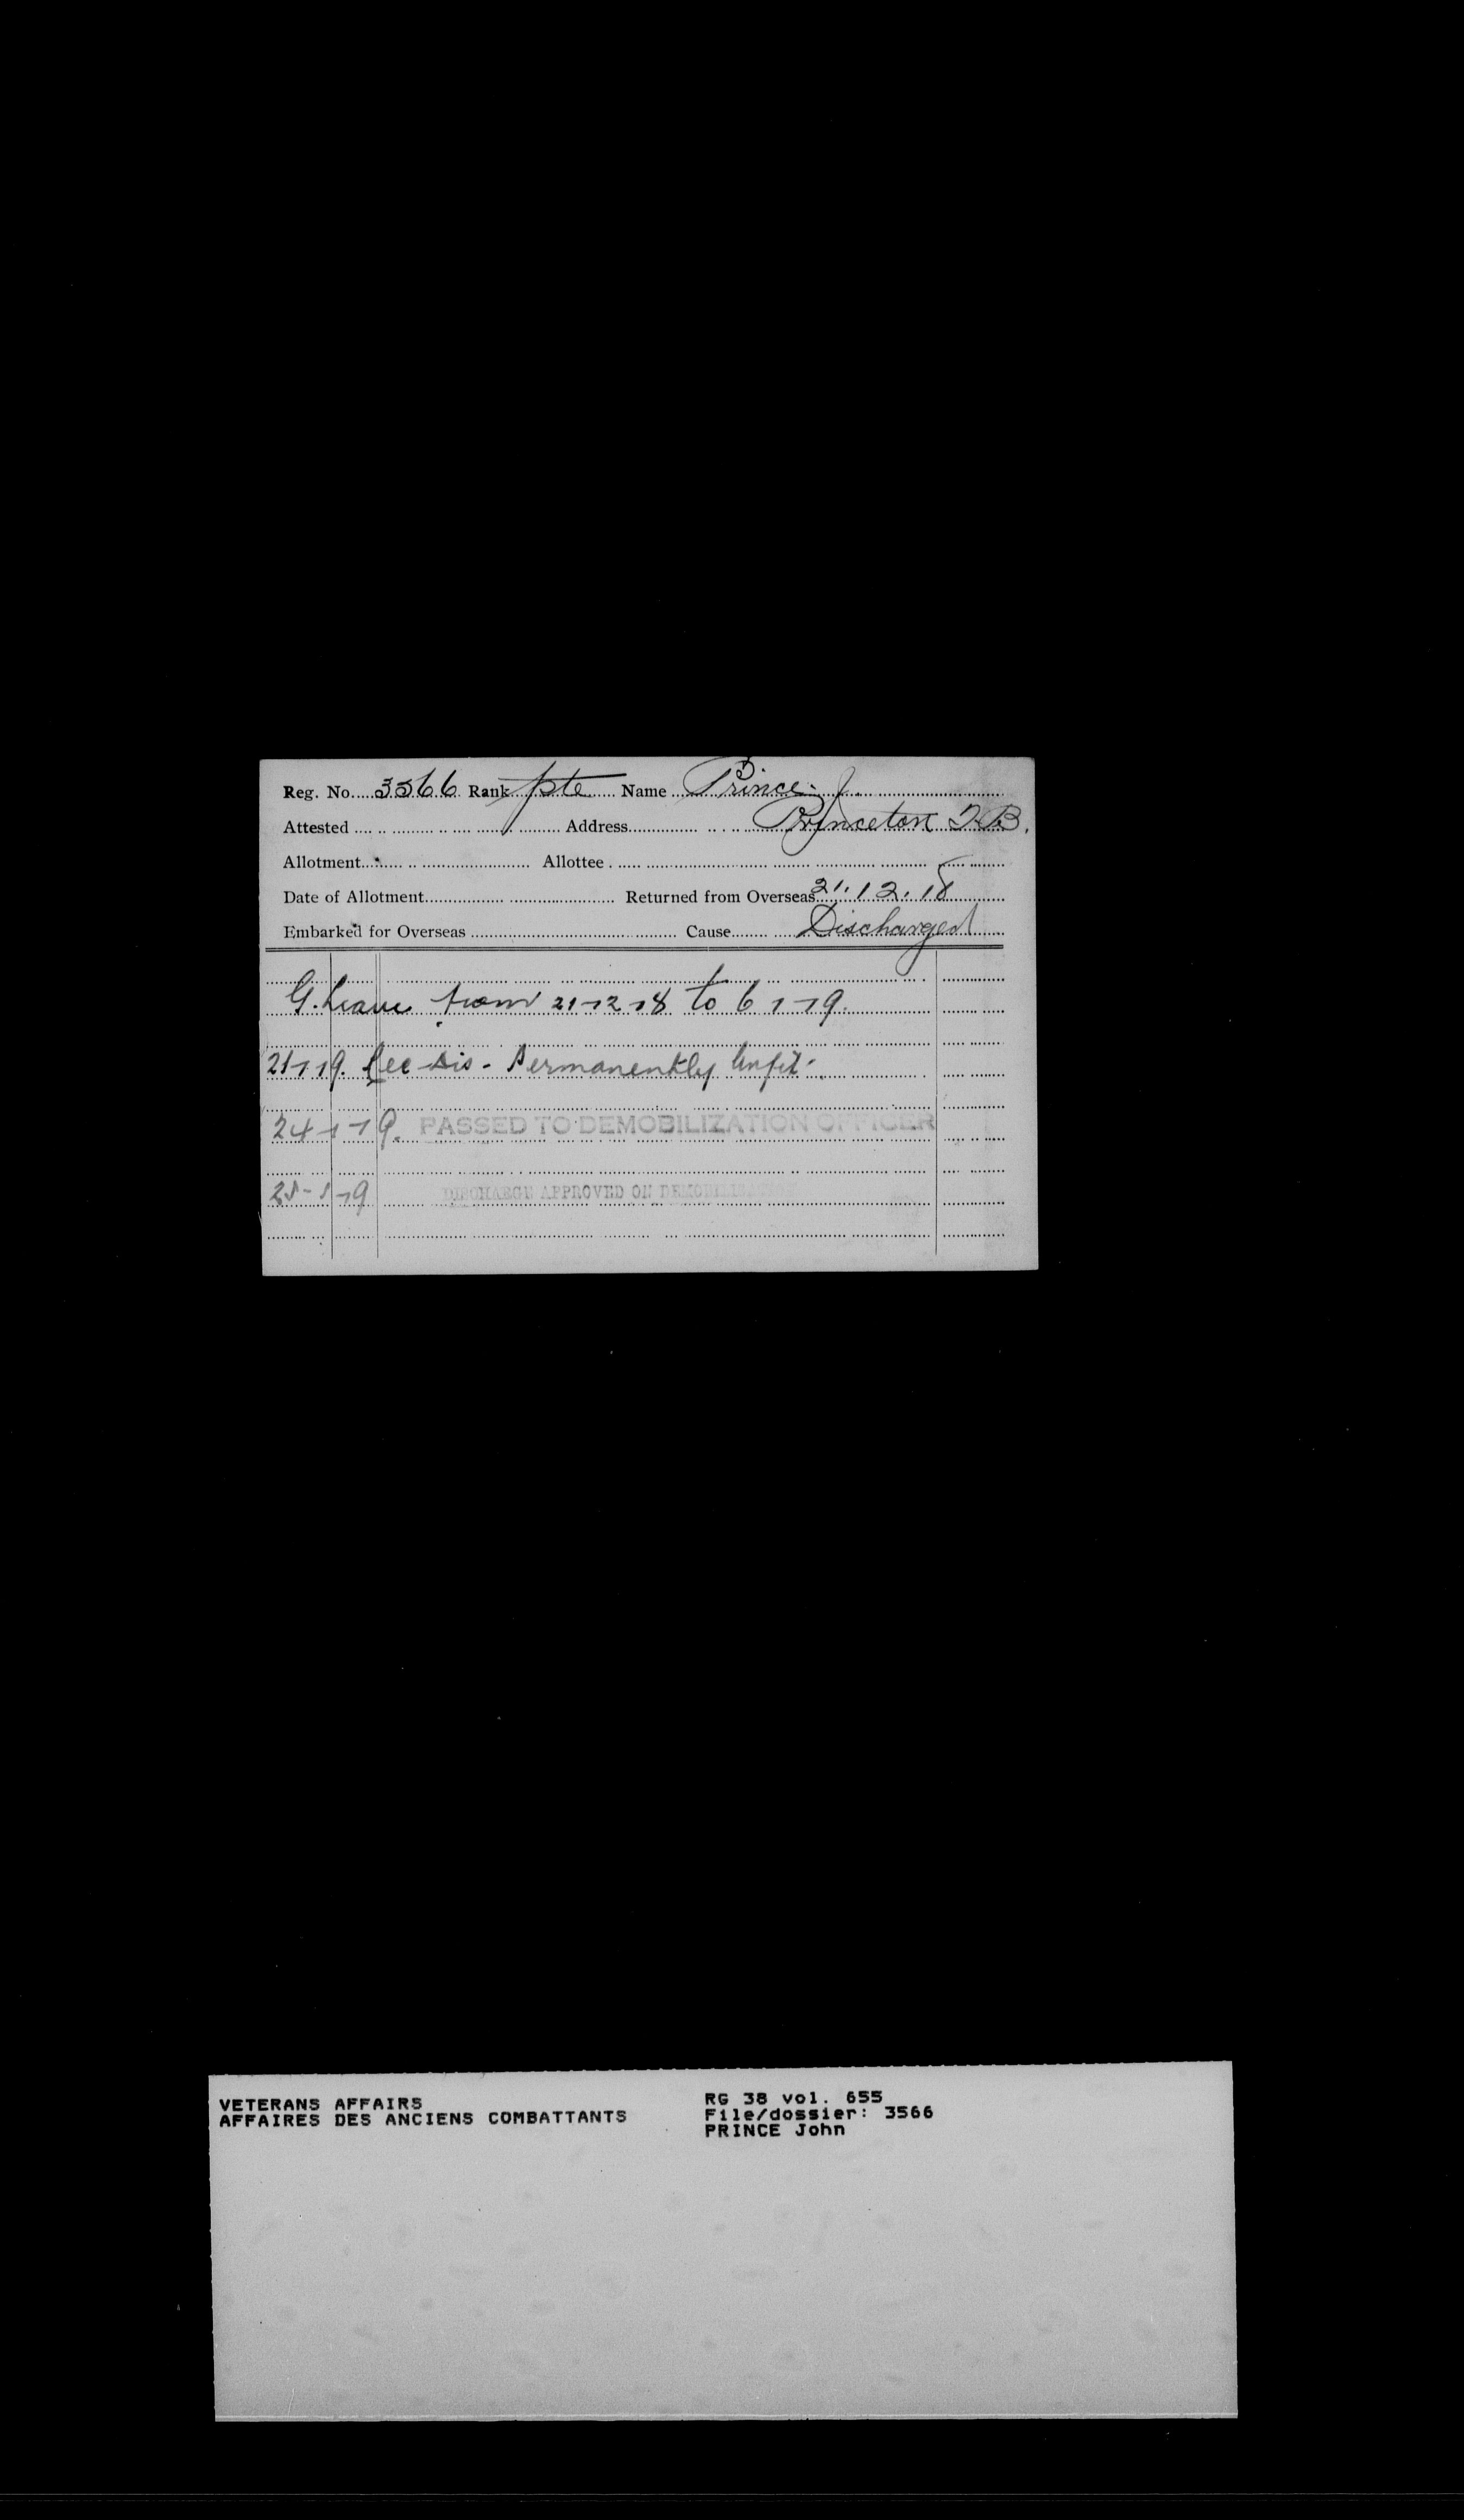 Reg. No. 3566 Rank pte Name Prince. J.
Attested Address Princeton B.B.
Allotment Allottee
Date of Allotment Returned from Overseas 21.12.18
Embarked for Overseas Cause Discharged
G. Leave from 21-12-18 to 6-1-19.
21-1-19. Rec Dis - Permanently Unfit.
24-1-19. PASSED TO DEMOBILIZATION OFFICER
-19 DISCHARGE APPROVED ON DEMOBILIZATION
VETERANS AFFAIRS
AFFAIRES DES ANCIENS COMBATTANTS
RG 38 vol. 655
File/dossier: 3566
PRINCE John